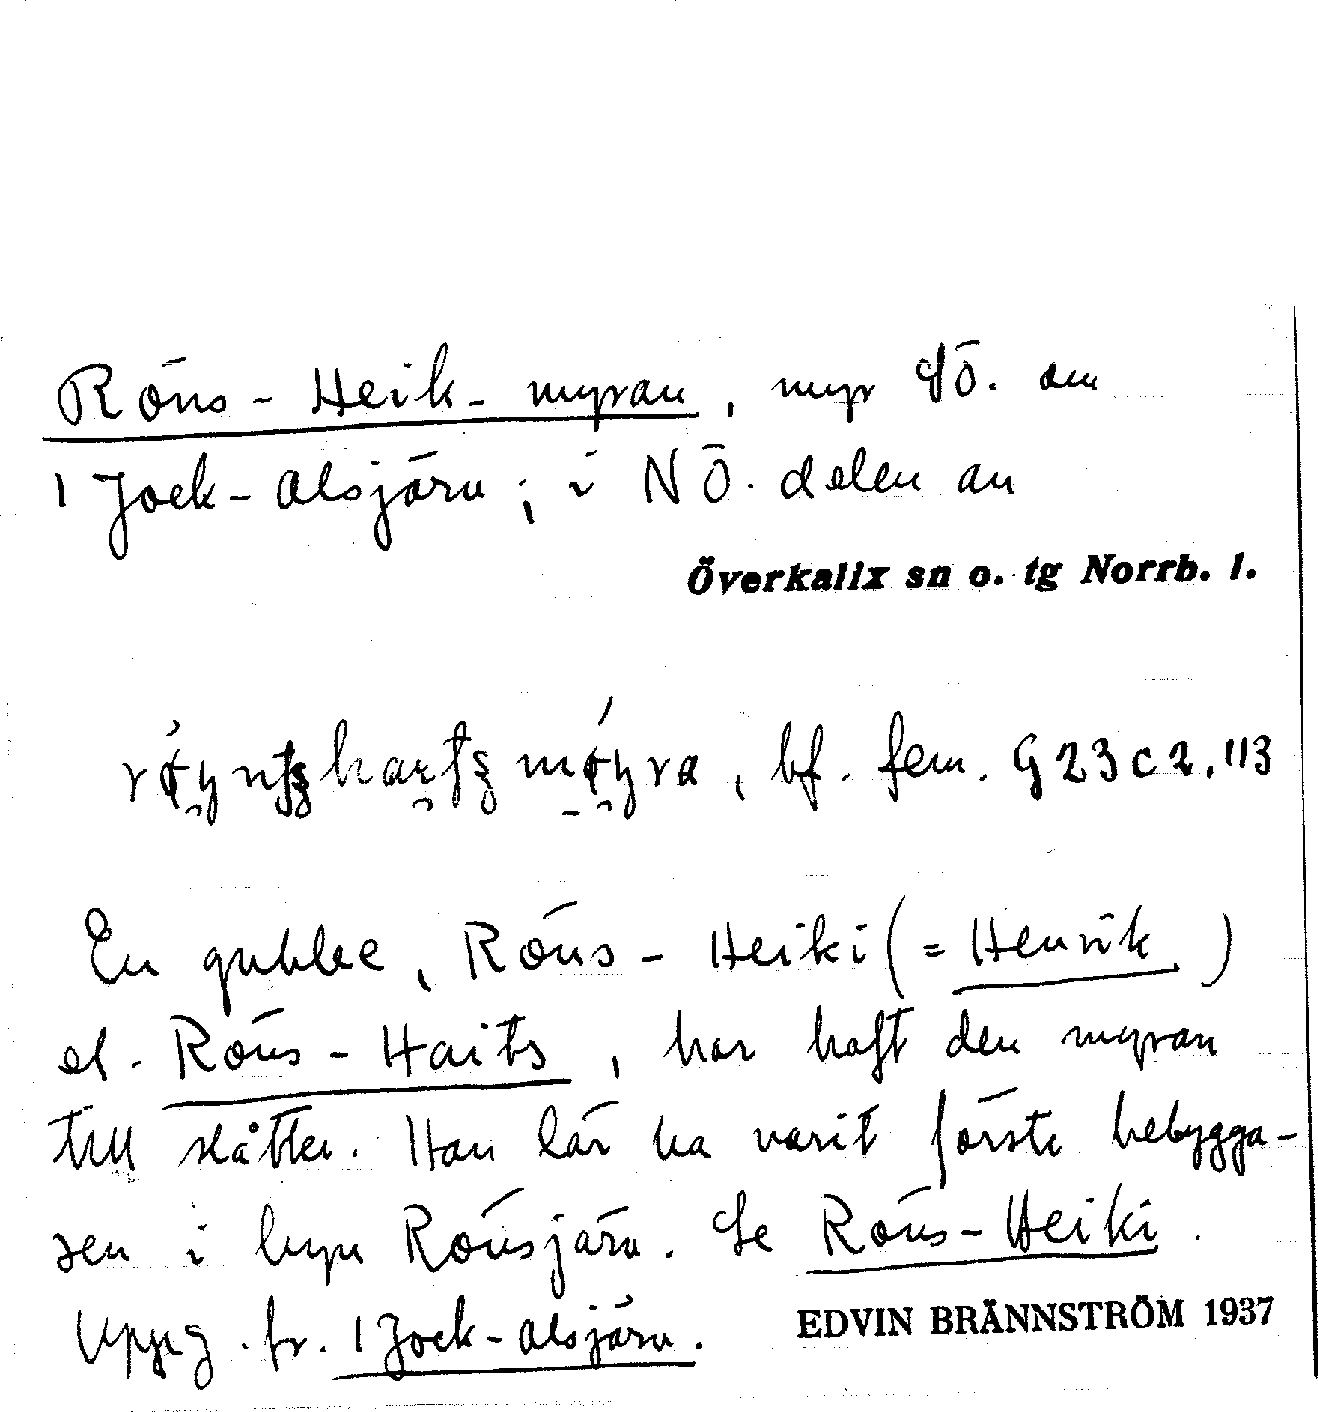 Röns-Heik-myran, myr SÖ. om
1 Jock-Alsjärv; i NÖ. delen av
Överkalix sn o. tg Norrb. l.
bf. fem. G 23 c 2, 113
En gubbe, Röns-Heiki (= Henrik)
el. Röns-Haits, har haft den myran
till slåtter. Han lär ha varit första bebygga-
ren i byn Rönsjärv. Se Röns-Heiki.
Uppg. fr. 1 Jock-Alsjärv.
EDVIN BRÄNNSTRÖM 1937